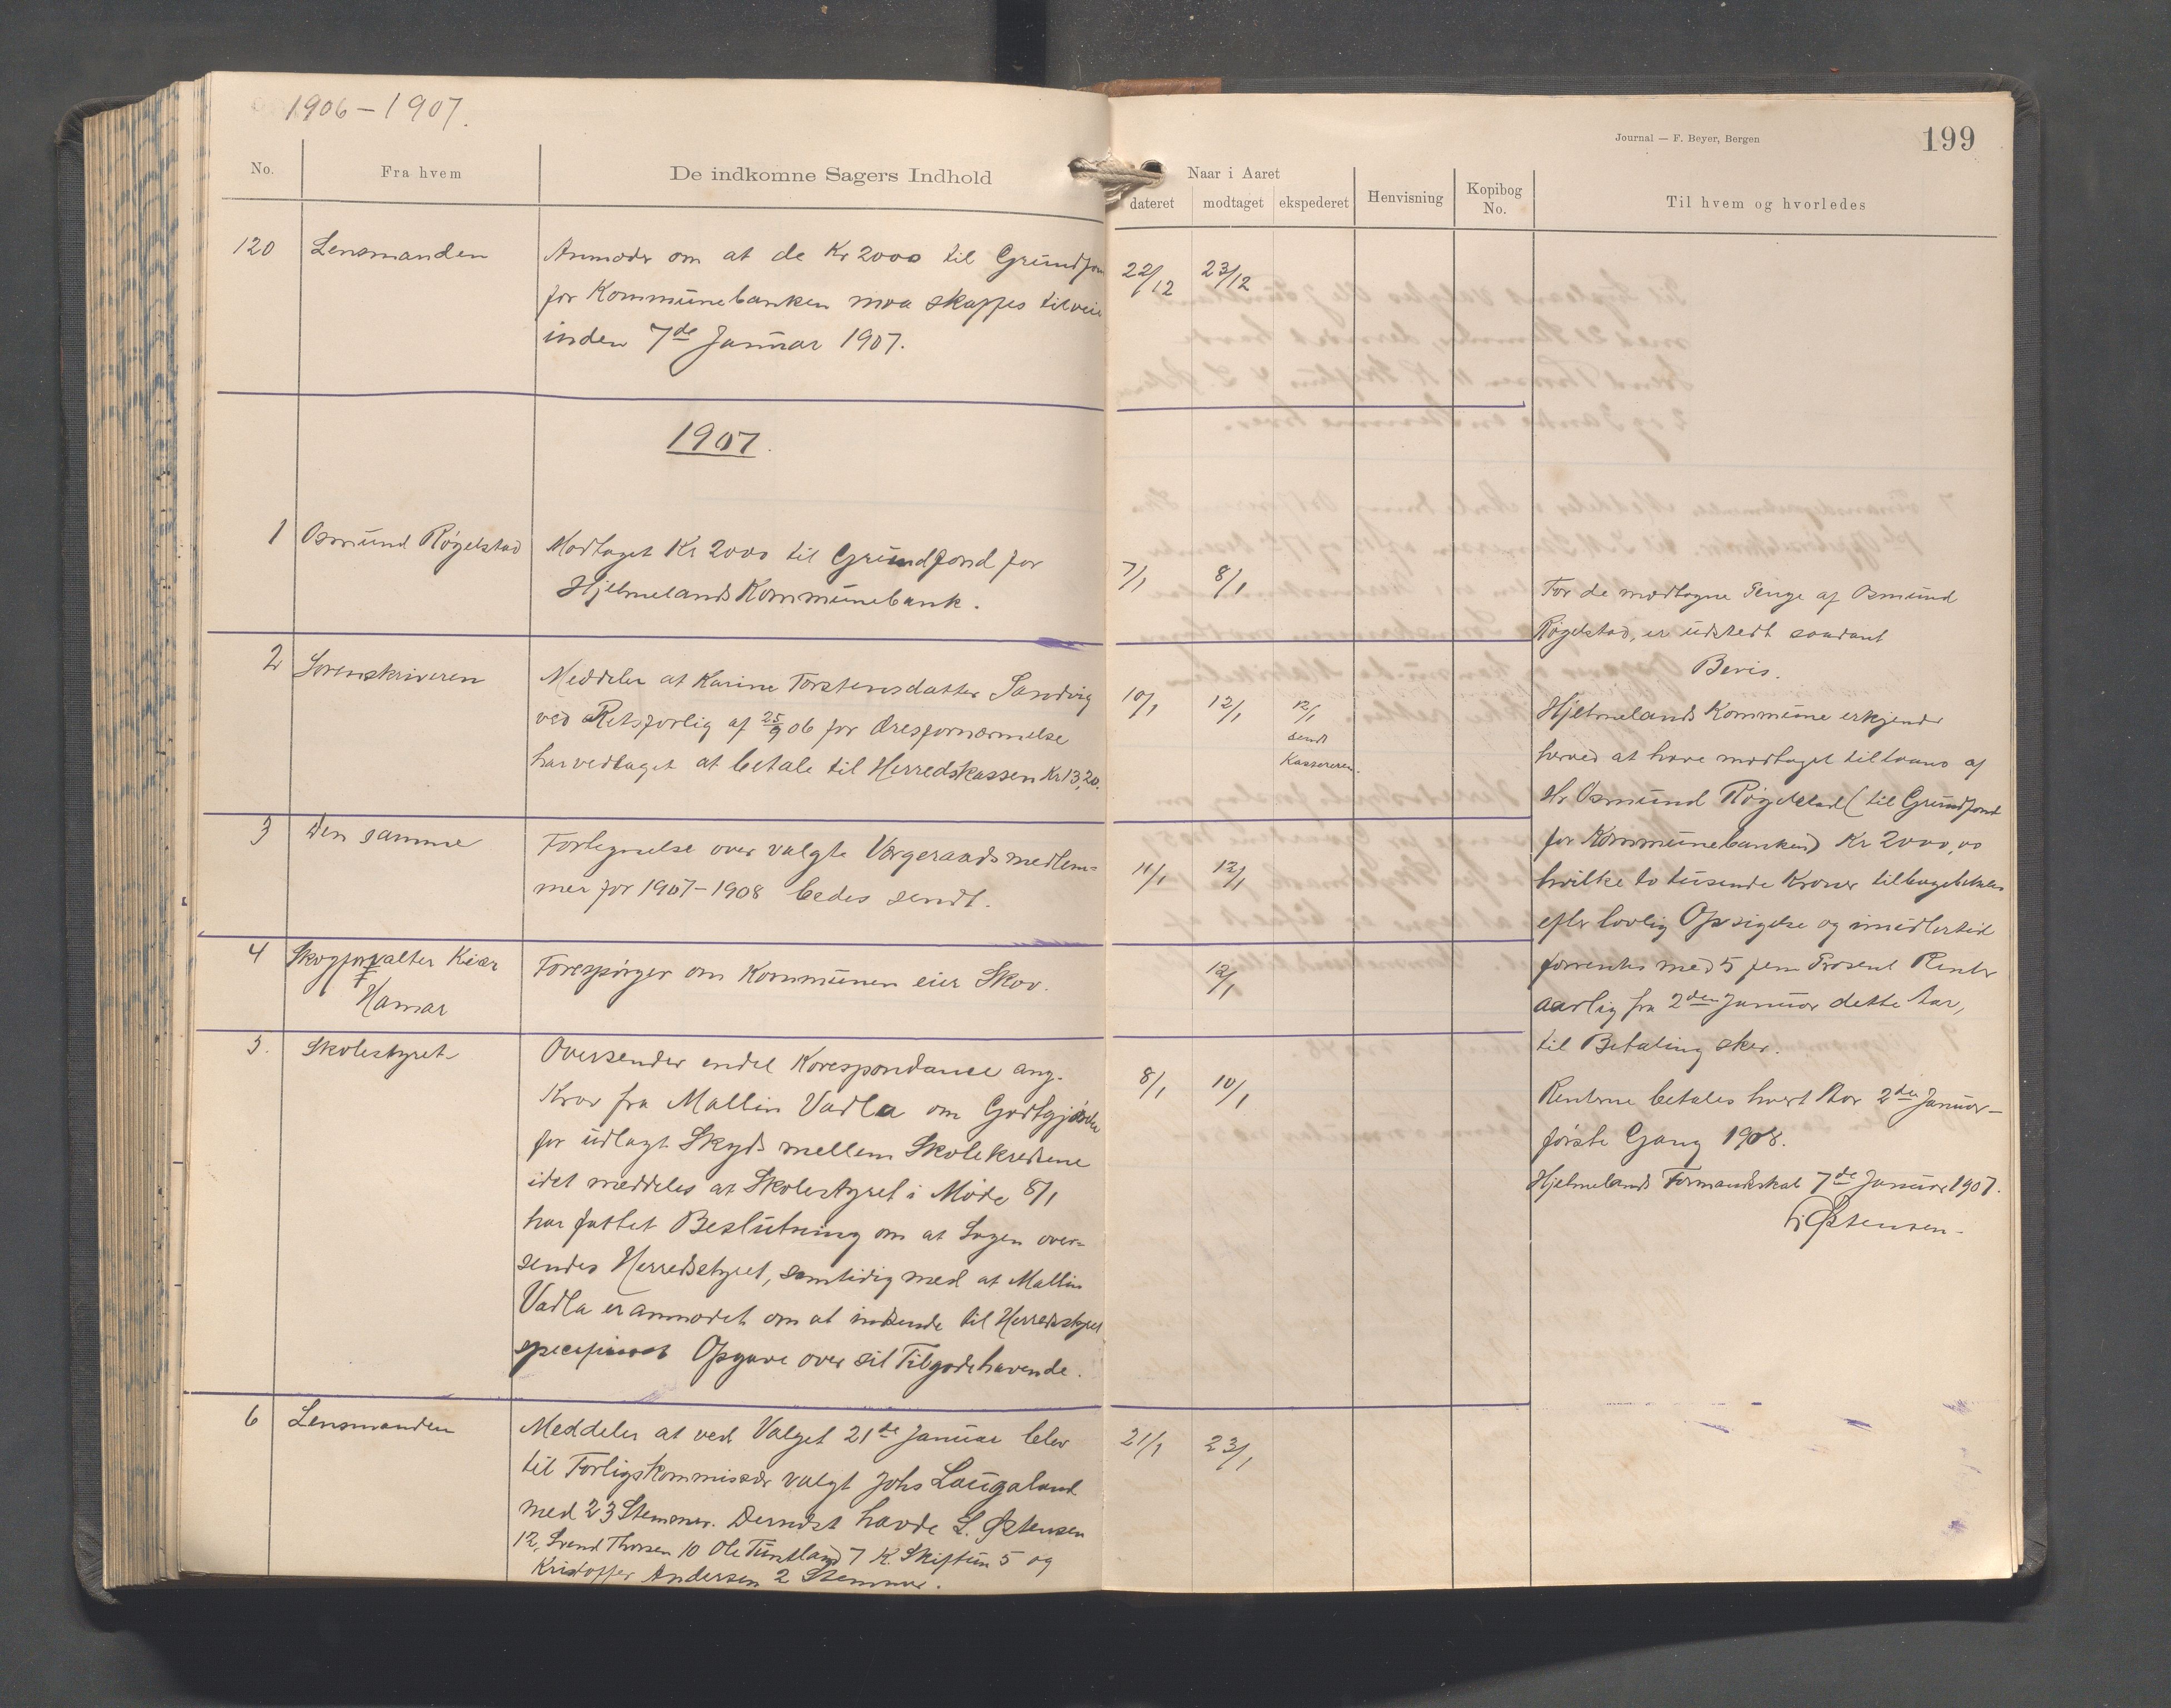 1906-1907.
No.
Fra hvem
De indkomne Sagers Indhold
120 Lensmanden
Anmoder om at de Kr 2000 til Grundfon
for Kommunebanken maa skaffes tilveie
inden 7de Januar 1907.
1907.
1 Osmund Røgelstad
Modtaget Kr 2000 til Grundfond for
Hjelmelands Kommunebank.
2 Sorenskriveren
Meddeler at Karine Torstensdatter Sandvig
ved Retsforlig af 25/9 06 for Æresfornærmelse
har vedtaget at betale til Herredskassen Kr 13,20.
3 Den samme
Fortegnelse over valgte Værgeraadsmedlem=
mer for 1907-1908 bedes sendt.
4 Skogforvalter Kiær
Hamar
Forespørger om Kommunen eier Skov.
5. Skolestyret
Oversender endel Korespondance ang.
Krav fra Mallin Vadla om Godtgjørelse
for udlagt Skyds mellem Skolekredsene
idet meddeles at Skolestyret i Møde 8/1
har fattet Beslutning om at Sagen over=
sendes Herredsstyret, samtidig med at Mallin
Vadla er anmodet om at indsende til Herredsstyret
specificeret Opgave over sit Tilgodehavende.
6 Lensmanden
Meddeler at ved Valget 21de Januar blev
til Forligskommissær valgt Johs Laugaland
med 23 Stemmer. Dernæst havde L. Østensen
12, Svend Thorsen 10 Ole Tuntland 7 K. Skiftun 5 og
Kristoffer Andersen 2 Stemmer.
Journal — F. Beyer, Bergen
199
Naar i Aaret
dateret
modtaget
ekspederet
Henvisning
Kopibog
No.
Til hvem og hvorledes
22/12 23/12
7/1 8/1
10/1 12/1 12/1
sendt
Kassereren.
11/1 12/1
12/1
8/1 10/1
21/1 23/1
For de modtagne Penge af Osmund
Røgelstad, er udstedt saadant
Bevis.
Hjelmelands Kommune erkjender
herved at have modtaget tillaans af
Hr Osmund Røgelstad (til Grundfond
for Kommunebanken) Kr 2000,00
hvilke to tusende Kroner tilbagebetales
efter lovlig Opsigelse og imidlertid
forrentes med 5 fem Prosent Renter
aarlig fra 2den Januar dette Aar,
til Betaling sker.
Renterne betales hvert Aar 2den Januar –
første Gang 1908.
Hjelmelands Formandskab 7de Januar 1907.
Østensen